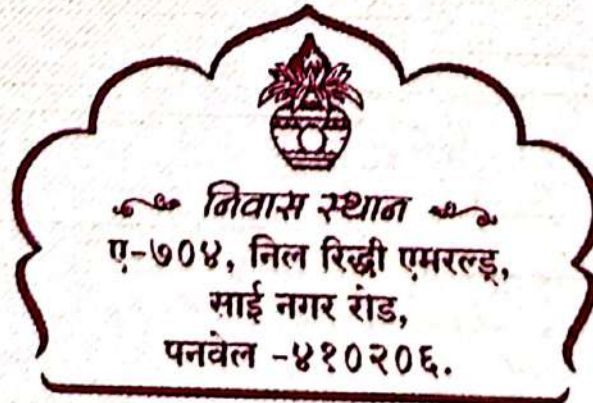 निवास स्थान
ए-७०४, निल रिद्धी एमरल्ड्,
साई नगर रोड,
पनवेल -४१०२०६.